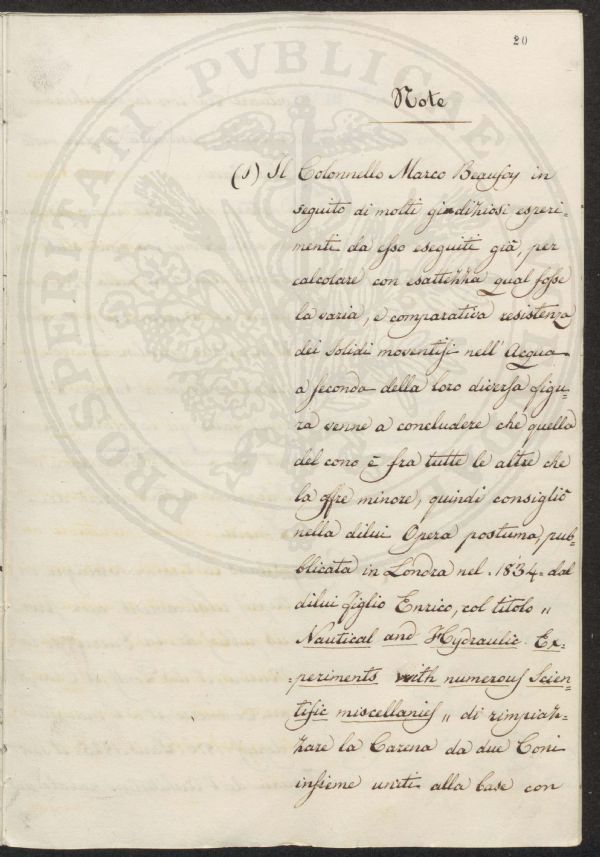 20
Note
(1) Il Colonnello Marco Beaufoy in
seguito di molti giudiziosi esperi-
menti da esso eseguiti già, per
calcolare con esattezza qual fosse
la varia, e comparativa resistenza
dei solidi moventisi nell' Acqua
a seconda della loro diversa figu-
ra venne a concludere che quella
del cono è fra tutte le altre che
la offre minore, quindi consigliò
nella dilui Opera postuma, pub-
blicata in Londra nel 1834 dal
dilui figlio Enrico, col titolo „
Nautical and Hydraulic Ex-
periments with numerous Scien-
tific miscellanies „ di rimpiaz-
zare la Carena da due Coni
insieme uniti alla base con
PROSPERITATI PVBLICAE